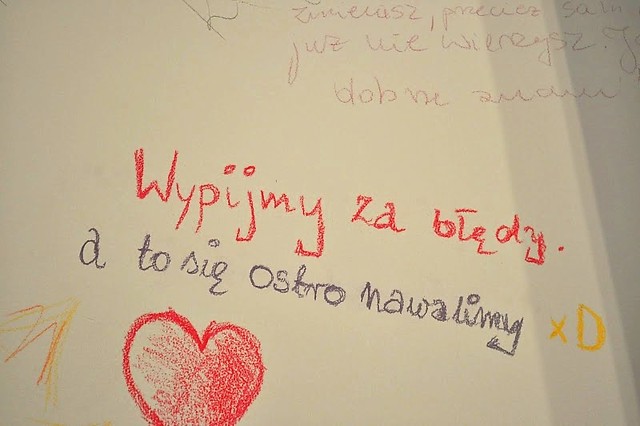 już nie wierzysz.
dobrze znam
Wypijmy za błędy.
a to się ostro nawalimy xD